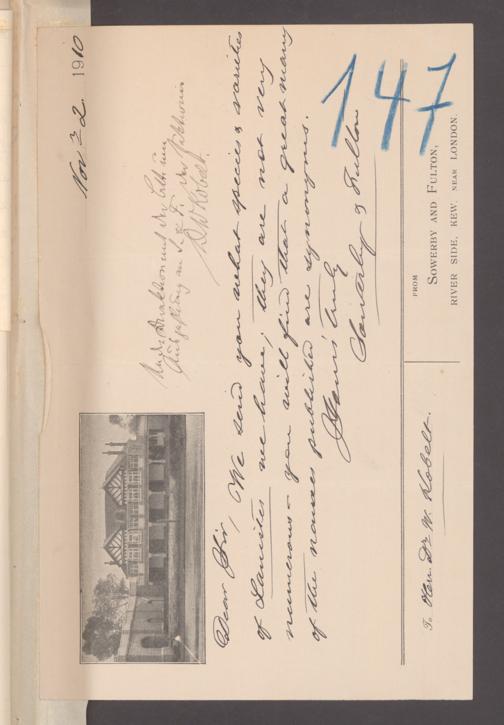 Nov 22 1910
Dear Sir, We send you what species & varieties
of Lanistes we have; they are not very
numerous - you will find that a great many
of the names published are synonyms.
Yours truly
Sowerby & Fulton
147
Dr W Kobelt
FROM
SOWERBY AND FULTON,
RIVER SIDE, KEW, NEAR LONDON.
To Herr Dr W. Kobelt.